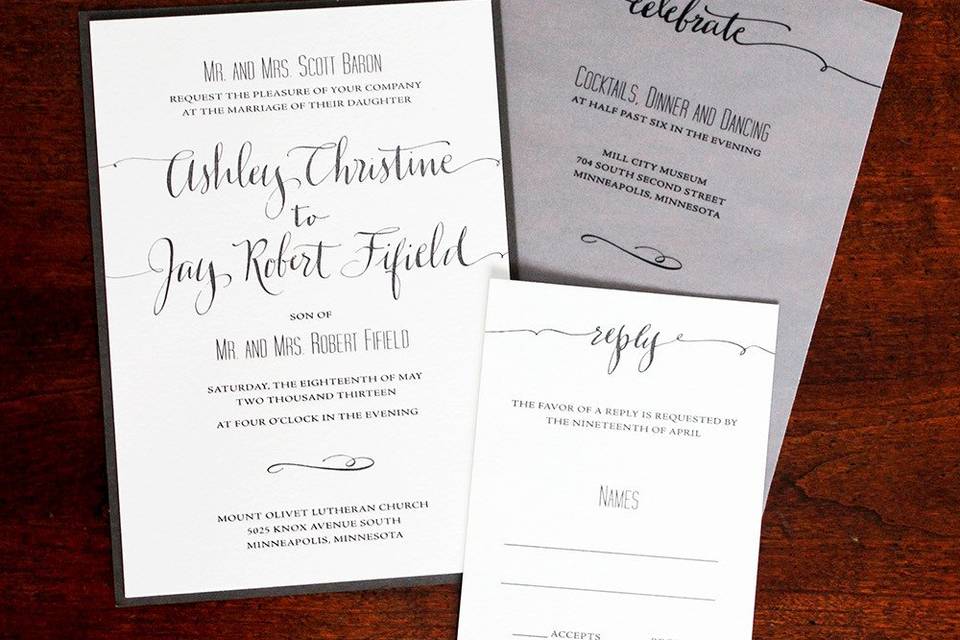 Mr. and Mrs. Scott Baron
REQUEST THE PLEASURE OF YOUR COMPANY
AT THE MARRIAGE OF THEIR DAUGHTER
Ashley Christine
to
Jay Robert Fifield
SON OF
Mr. and Mrs. Robert Fifield
SATURDAY, THE EIGHTEENTH OF MAY
TWO THOUSAND THIRTEEN
AT FOUR O'CLOCK IN THE EVENING
MOUNT OLIVET LUTHERAN CHURCH
5025 KNOX AVENUE SOUTH
MINNEAPOLIS, MINNESOTA
celebrate
Cocktails, Dinner and Dancing
AT HALF PAST SIX IN THE EVENING
MILL CITY MUSEUM
704 SOUTH SECOND STREET
MINNEAPOLIS, MINNESOTA
reply
THE FAVOR OF A REPLY IS REQUESTED BY
THE NINETEENTH OF APRIL
Names
ACCEPTS